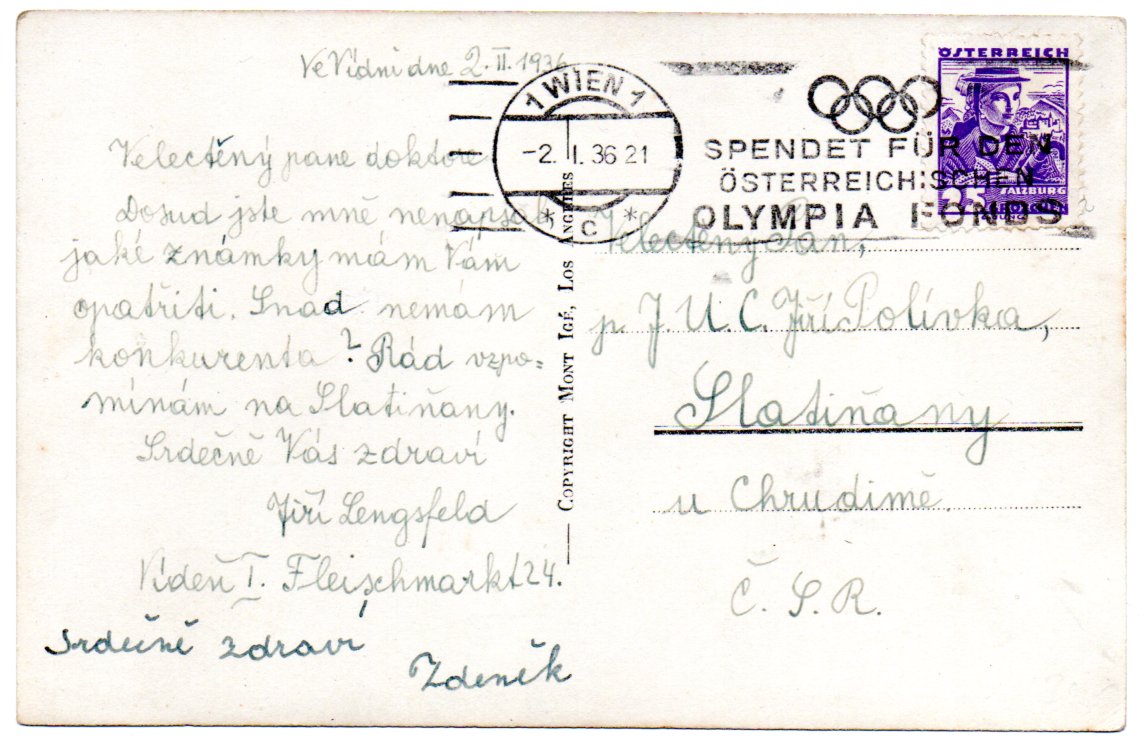 Ve Vídni dne 2. II. 1936
Velectěný pane doktore
Dosud jste mně nenapsal
jaké známky mám Vám
opatřiti. Snad nemám
konkurenta? Rád vzpo=
mínám na Slatiňany.
Srdečně Vás zdraví
Jiří Lengsfeld
Vídeň I. Fleischmarkt 24.
Srdečně zdraví
Zdeněk
COPYRIGHT MONT IGÉ, LOS ANGELES
1 WIEN 1
-2. II. 36 21
* C *
SPENDET FÜR DEN
ÖSTERREICHISCHEN
OLYMPIA FONDS
ÖSTERREICH
SALZBURG
35
Velectěný Pan,
p. J. U. C. Jiří Polívka,
Slatiňany
u Chrudimě.
Č. S. R.